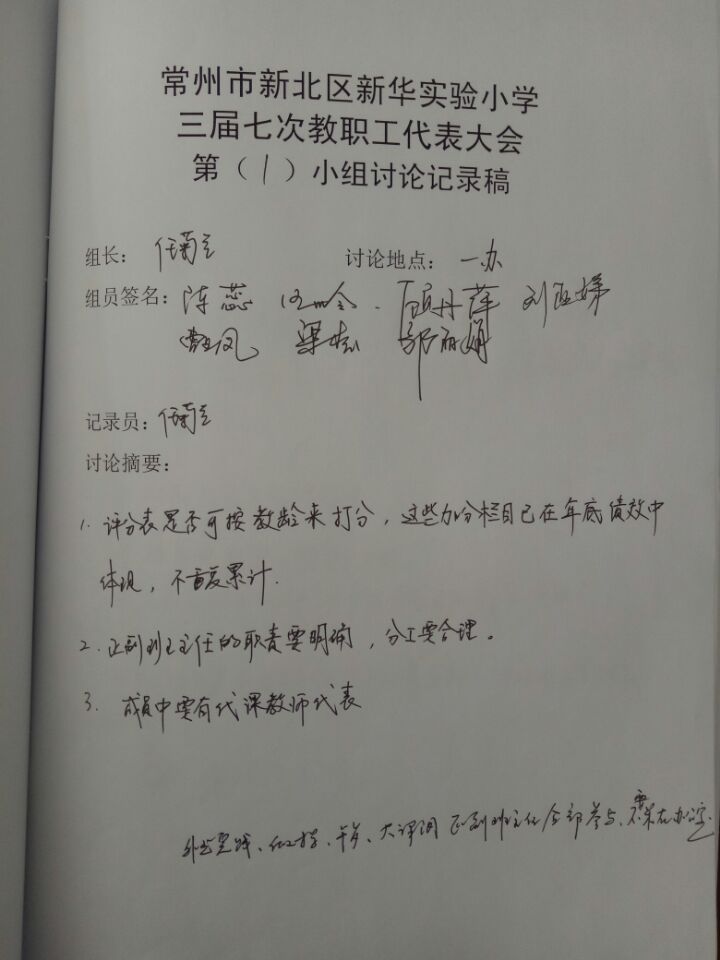 常州市新北区新华实验小学
三届七次教职工代表大会
第（1）小组讨论记录稿
组长： 任菊 讨论地点： 一办
组员签名： 陈蕊 顾丹萍 刘亚娣
凤 梁 郭丽娟
记录员： 任菊
讨论摘要：
1. 评分表是否可按教龄来打分，这些加分栏目已在年底绩效中
体现，不重复累计.
2. 正副班主任的职责要明确，分工要合理。
3. 成员中要有代课教师代表
大课间 正副班主任全部参与、要 在办公室.